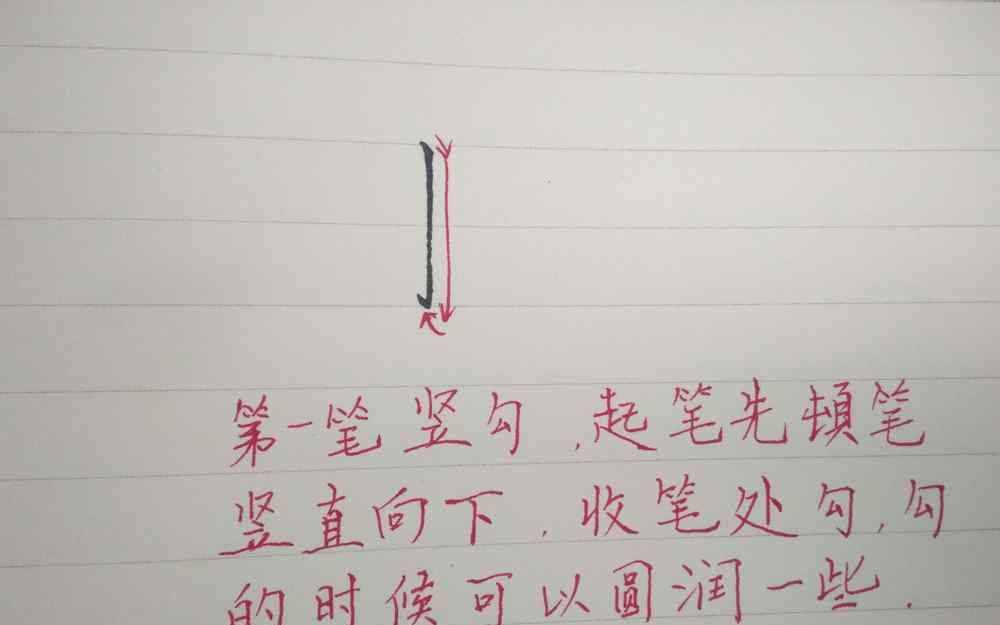 第一笔竖勾，起笔先頓笔
竖直向下，收笔处勾，勾
的时候可以圆润一些．